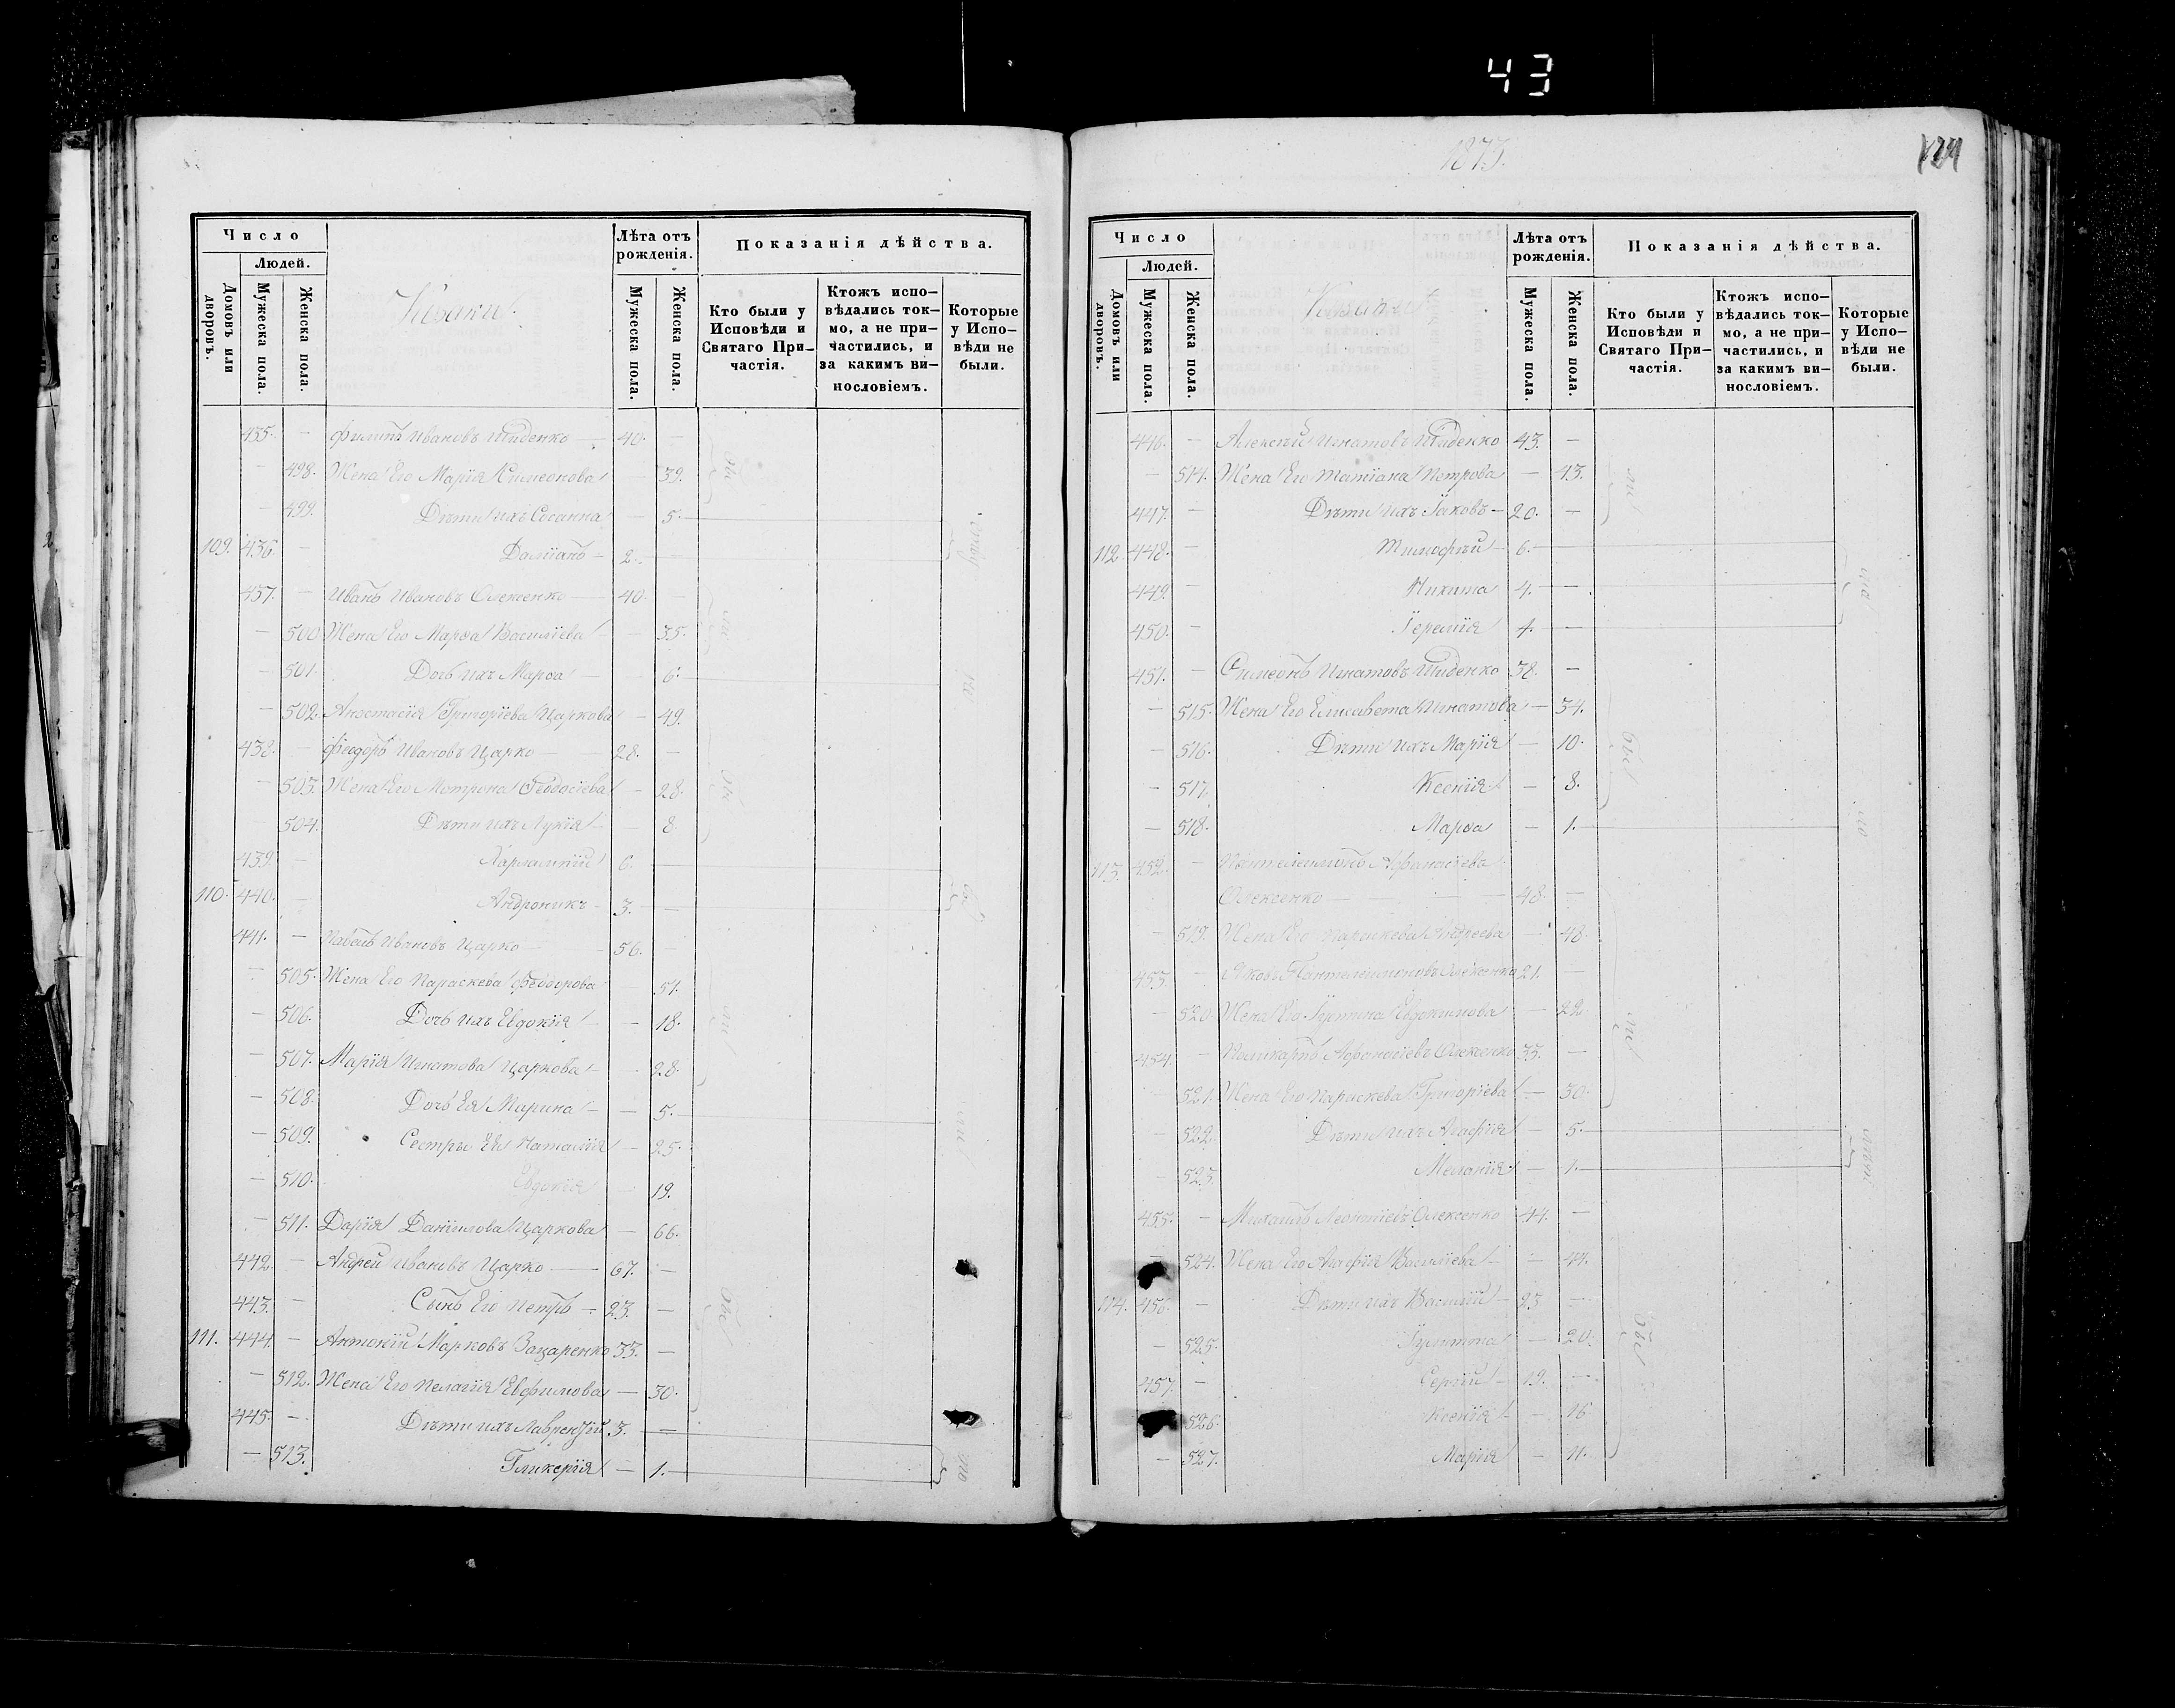 43
Число
Людей.
Домовъ или дворовъ.
Мужеска пола.
Женска пола.
Козаки.
Лѣта отъ рожденія.
Мужеска пола.
Женска пола.
Показанія дѣйства.
Кто были у Исповѣди и Святаго Причастія.
Ктожъ исповѣдались токмо, а не причастились, и за какимъ винословіемъ.
Которые у Исповѣди не были.
435. — Филиппъ Ивановъ Шиденко — 40. —
— 498. Жена Его Марія Симеонова — 39.
— 499. Дѣти ихъ Сосанна — 5.
109. 436. — Даміанъ — 2. —
437. — Иванъ Ивановъ Олексенко — 40. —
— 500 Жена Его Марѳа Василіева — 35.
— 501. Дочь ихъ Марѳа — 6.
— 502. Анастасія Григоріева Царкова — 49.
438. — Феодоръ Ивановъ Царко — 28. —
— 503. Жена Его Мотрона Ѳеодосіева — 28.
504. Дѣти ихъ Лукія — 8.
439. — Харлампій 6. —
110. 440. — Андроникъ — 3. —
441. — Павелъ Ивановъ Царко — 56.
— 505. Жена Его Параскева Феодорова 51.
— 506. Дочь ихъ Евдокія — 18.
— 507. Марія Игнатова Царкова — 28.
— 508. Дочь Ея Марина — 5.
— 509. Сестры Ея Наталія — 25.
— 510. Евдокія 19.
— 511. Дарія Даніилова Царкова — 66.
442. — Андрей Ивановъ Царко — 67. —
443. — Сынъ Его Петръ — 23. —
111. 444. — Антоній Марковъ Зацаренко 33. —
— 512. Жена Его Пелагія Евфимова — 30.
445. — Дѣти ихъ Лаврентій. 3. —
— 513. Гликерія — 1.
1873.
124
Число
Людей.
Домовъ или дворовъ.
Мужеска пола.
Женска пола.
Козаки
Лѣта отъ рожденія.
Мужеска пола.
Женска пола.
Показанія дѣйства.
Кто были у Исповѣди и Святаго Причастія.
Ктожъ исповѣдались токмо, а не причастились, и за какимъ винословіемъ.
Которые у Исповѣди не были.
446. — Алексѣй Игнатовъ Шиденко 43. —
— 514. Жена Его Татіана Петрова — 43.
447. — Дѣти ихъ Іаковъ — 20. —
112 448. — Тимофѣй — 6. —
449. — Никита 4. —
450. — Іеремія 4. —
451. — Симеонъ Игнатовъ Шиденко 38. —
— 515. Жена Его Елисавета Игнатова — 34.
— 516. Дѣти ихъ Марія — 10.
— 517. Ксенія — 8.
— 518. Марѳа — 1.
113. 452. — Пантелеимонъ Афанасіевъ
Олексенко — 48. —
— 519. Жена Его Параскева Андреева — 48.
453. — Яковъ Пантелеимоновъ Олексенко 21. —
— 520 Жена Его Іустина Евдокимова — 22.
454. — Поликарпъ Афанасіевъ Олексенко 33. —
521. Жена Его Параскева Григоріева — 30.
— 522. Дѣти ихъ Агафія — 5.
— 523. Меланія — 1.
455. — Михаилъ Леонтіевъ Олексенко 44. —
— 524. Жена Его Агафія Василіева — 44.
114. 456. — Дѣти ихъ Василій — 23 —
— 525. Іулитта — 20.
457. — Сергій — 19. —
526. Ксенія — 16
— 527. Марія — 11.